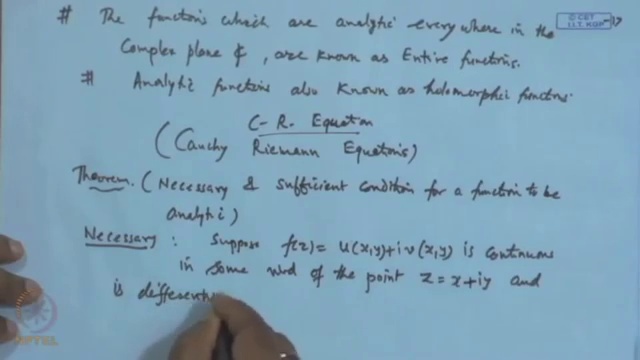 # The functions which are analytic everywhere in the
Complex plane ₵, are known as Entire functions.
# Analytic functions also known as holomorphic functions.
C-R. Equation
(Cauchy Riemann Equations)
Theorem. (Necessary & sufficient condition for a function to be
analytic)
Necessary : Suppose f(z) = u(x,y)+iv(x,y) is continuous
in some nbd of the point z = x+iy and
is different
© CET
I.I.T. KGP
NPTEL